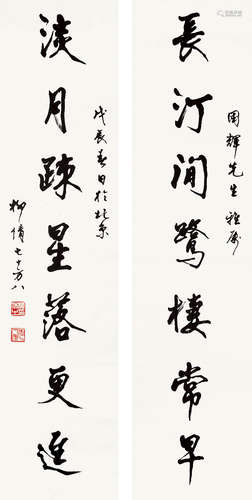 輝先生雅屬
長汀閒鷺棲常早
戊辰春日於北京
淡月疎星落更遲
柳倩七十又八